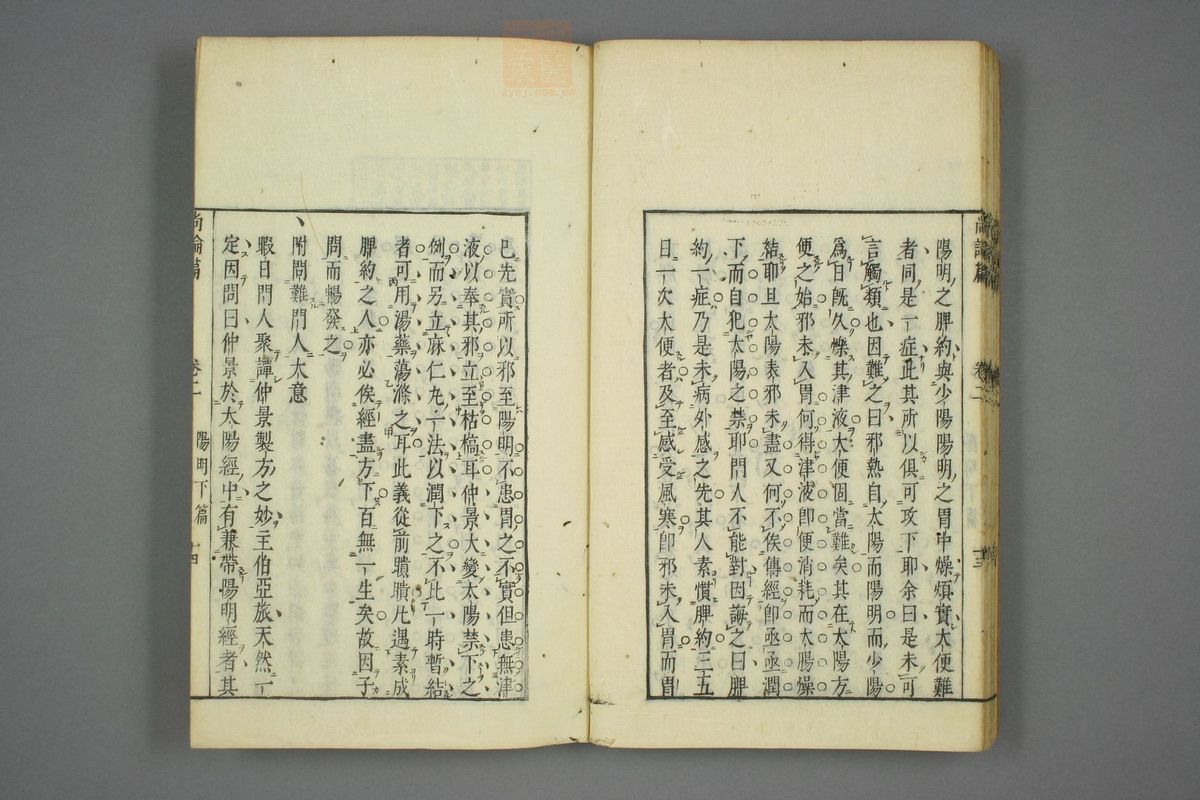 陽明之脾約與少陽陽明之胃中燥煩實大便難
者同是一症此其所以俱可攻下耶余曰是未可
言觸類也因難之曰邪熱自太陽而陽明而少陽
為日既久爍其津液大便固當難矣其在太陽方
便之始邪未入胃何得津液即便消耗而大腸燥
結耶且太陽表邪未盡又何不俟傳經即亟亟潤
下而自犯太陽之禁耶門人不能對因誨之曰脾
約一症乃是未病外感之先其人素慣脾約三五
日一次大便者及至感受風寒即邪未入胃而胃
已先實所以邪至陽明不患胃之不實但患無津
液以奉其邪立至枯槁耳仲景大變太陽禁下之
例而另立麻仁丸一法以潤下之不此一時暫結
者可用湯藥蕩滌之耳此義從前聵聵凡遇素成
脾約之人亦必俟經盡方下百無一生矣故因子
問而暢發之
附問難門人大意
暇日門人聚譚仲景製方之妙主伯亞旅天然一
定因問曰仲景於太陽經中有兼帶陽明經者其
尚論篇 卷二 陽明下篇 十四
zysj.com.cn